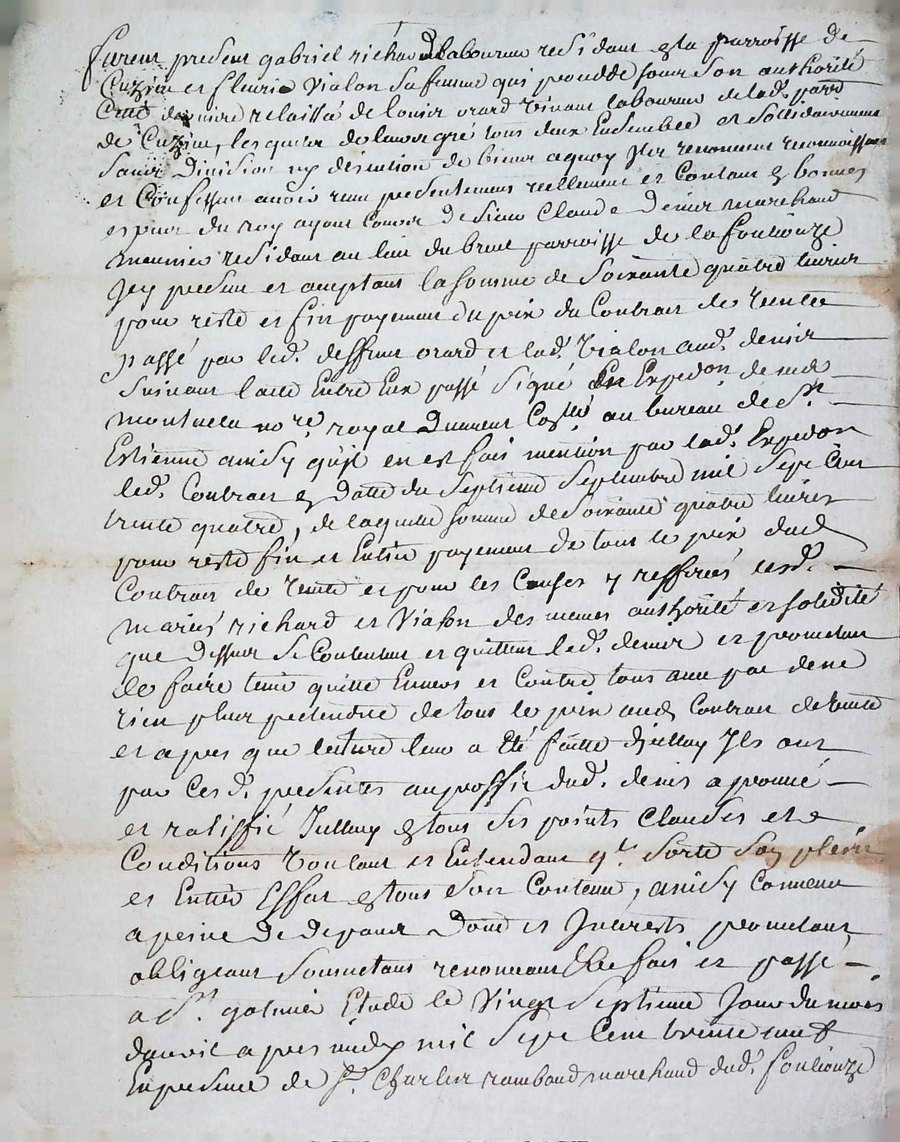 furent present gabriel richard laboureur residant en la parroisse de
Cuzieu et fleurie Vialon sa femme qui procedde sous son authorité
Cette derniere relaissée de Louis orard vivant laboureur de lad. parr
de Cuzieu, lesquels de leur gré tous deux Ensemble et sollidairement
sans Division ny discution de biens a quoy Ils renoncent reconnoissent
et Confessent avoir reçu presentement reellement et Contant en bonnes
especes du roy ayant Cours de sieur Claude Denis marchand
meunier residant au lieu du breuil parroisse de la foulionze
Icy present et acceptant la somme de Soixante quatre livres
pour reste et fin payement du prix du Contrat de Vente
passé par led. deffunt orard et lad. Vialon aud. denis
Suivant l'acte Entre Eux passé Signé En Expedon de me
montuella nore royal Duement Collé au bureau de St
Estienne ainsy qu'il en est fait mention par lad. Expedon
led. Contrat en datte du Septieme Septembre mil Sept Cent
trente quatre, de laquelle somme de Soixante quatre livres
pour reste fin et Entier payement de tout le prix dud
Contrat de Vente et pour les Causes y refferées lesd.
mariés richard et Vialon des memes authorité et solidité
que Dessus se Contentent et quittent led. denis et promettent
de faire tenir quitte Envers et Contre tous avec pacte de ne
rien plus pretendre de tout le prix aud. Contrat de Vente
et apres que lecture leur a Eté faitte d'jcelluy Ils ont
par Ces d. presentes au proffit dud. denis aprouvé
et ratiffié Jcelluy en tous ses points Clauses et
Conditions Voulant et Entendant q'il sorte son plein
et Entier Effet en tout son Contenu, ainsy Convenu
a peine de depens Dom. et Interests promettant
obligeant soumettant renonceant &ce fait et passé
a St. galmier Etude le Vingt Septieme Jour du mois
d'avril apres midy mil Sept Cent trente neuf
En presence de Sr. Charles rambaud marchand dud. foulionze